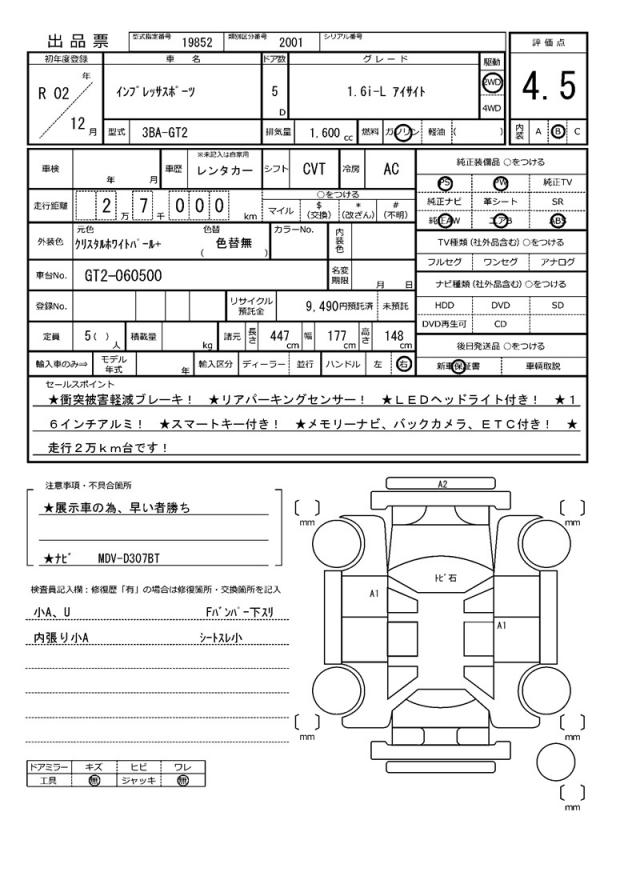 出品票 型式指定番号 19852 類別区分番号 2001 シリアル番号
評価点
4.5
内装 A B C
初年度登録 車名 ドア数 グレード 駆動
R 02 年 12 月
インプレッサスポーツ 5 D 1.6i-L アイサイト 2WD 4WD
型式 3BA-GT2 排気量 1.600 cc 燃料 ガソリン 軽油 ( )
車検 年 月 車歴 ※未記入は自家用 レンタカー シフト CVT 冷房 AC
走行距離 2 万 7 千 0 0 0 km
○をつける
マイル $(交換) *(改ざん) #(不明)
外装色 元色 クリスタルホワイトパール+ 色替 ( 色替無 ) カラーNo. 内装色
車台No. GT2-060500 名変期限 月 日
登録No. リサイクル預託金 9,490円預託済 未預託
定員 5( )人 積載量 kg 諸元 長さ 447 cm 幅 177 cm 高さ 148 cm
輸入車のみ⇒ モデル年式 年 輸入区分 ディーラー 並行 ハンドル 左 右
純正装備品 ○をつける
PS PW 純正TV
純正ナビ 革シート SR
純正AW エアB ABS
TV種類(社外品含む)○をつける
フルセグ ワンセグ アナログ
ナビ種類(社外品含む)○をつける
HDD DVD SD
DVD再生可 CD
後日発送品 ○をつける
新車保証書 車輌取説
セールスポイント
★衝突被害軽減ブレーキ! ★リアパーキングセンサー! ★LEDヘッドライト付き! ★1
6インチアルミ! ★スマートキー付き! ★メモリーナビ、バックカメラ、ETC付き! ★
走行2万km台です!
注意事項・不具合箇所
★展示車の為、早い者勝ち
★ナビ MDV-D307BT
検査員記入欄:修復歴「有」の場合は修復箇所・交換箇所を記入
小A、U Fバンパー下スリ
内張り小A シートスレ小
ドアミラー キズ ヒビ ワレ
工具 無 ジャッキ 無
A2
トビ石
A1
A1
[ ] mm
[ ] mm
[ ] mm
[ ] mm
[ ] mm